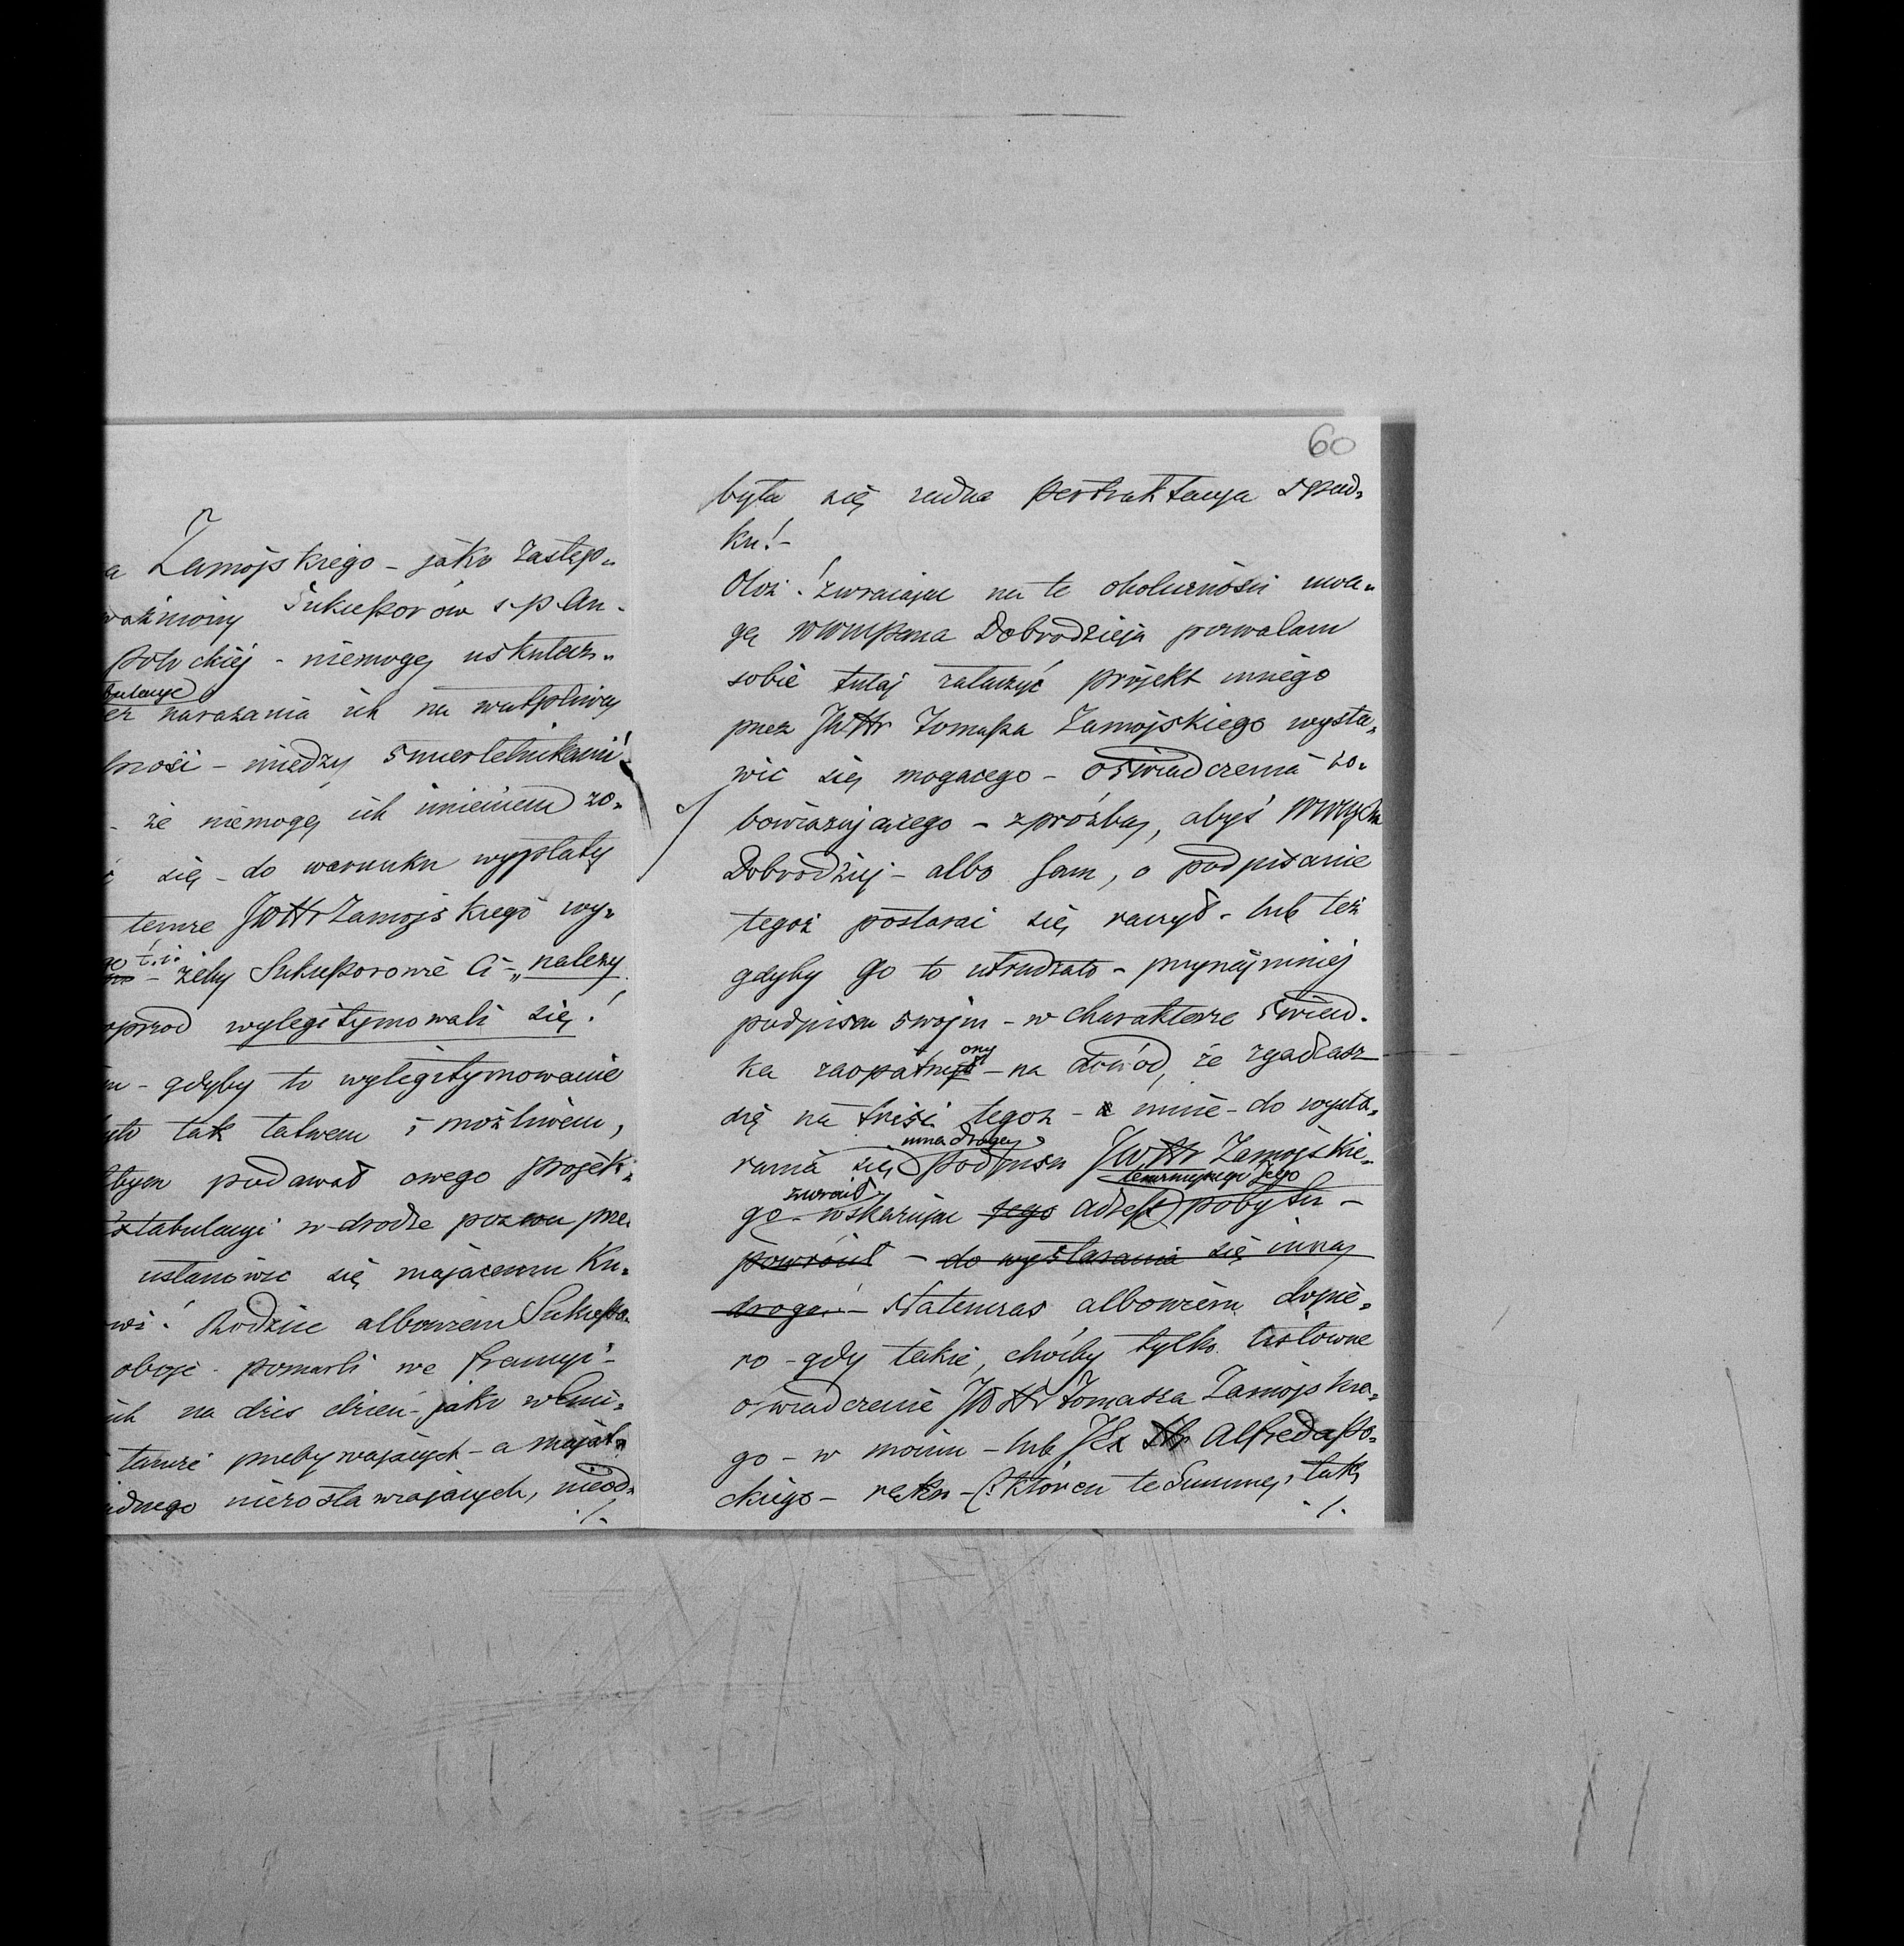 a Zamojskiego - jako Zastęp=
ważniony Sukceßorów s. p. An-
Potockiej - niemogę uskutecz=
narażania ich na wątpliwą
- między śmiertelnikami!
- że niemogę ich imieniem zo=
się - do warunku wypłaty
temże JWHr Zamojskiego wy=
t. i.
- żeby Sukceßorowie Ci - „należy
wylegitymowali się!
- gdyby to wylegitymowanie
tak łatwem i możliwem,
podawał owego projek=
w drodze pozwu prze
ustanowić się mającemu Ku=
Rodzice albowiem Sukceßo=
oboje - pomarli we Francyi -
ich na dziś dzień - jako
przebywających - a mająt=
niezostawiających, nieod=
./.
60
była się żadna pertraktacya spad=
ku! -
Otóż! zwracając na te okoliczności uwa=
gę WWmpana Dobrodzieja pozwalam
sobie tutaj załączyć projekt innego
przez JWHr Tomaßa Zamojskiego wysta=
wić się mogącego - oświadczenia zo=
bowiązującego - z prośbą, abyś
Dobrodziej - albo sam, o podpisanie
tegoż postarać się raczył - lub też
gdyby Go to utrudzało - przynajmniej
podpisem swojem - w charakterze świad=
ony
ka zaopatrzył - na dowód, że zgadzasz
się na treść tegoż - a mnie - do wysta=
inną drogą
rania się podpisu JWHr Zamojskie=
zwrócił teraźniejszego Jego
go - wskazując jego adreß pobytu -
powrócił - do wystarania się inną
drogą! - Natenczas albowiem dopie=
ro - gdy takie, choćby tylko listowne
oświadczenie JWHr Tomasza Zamojskie=
go - w moim - lub JEx Hr Alfreda Po=
ckiego - ręku - (: któren te Summę, tak
./.